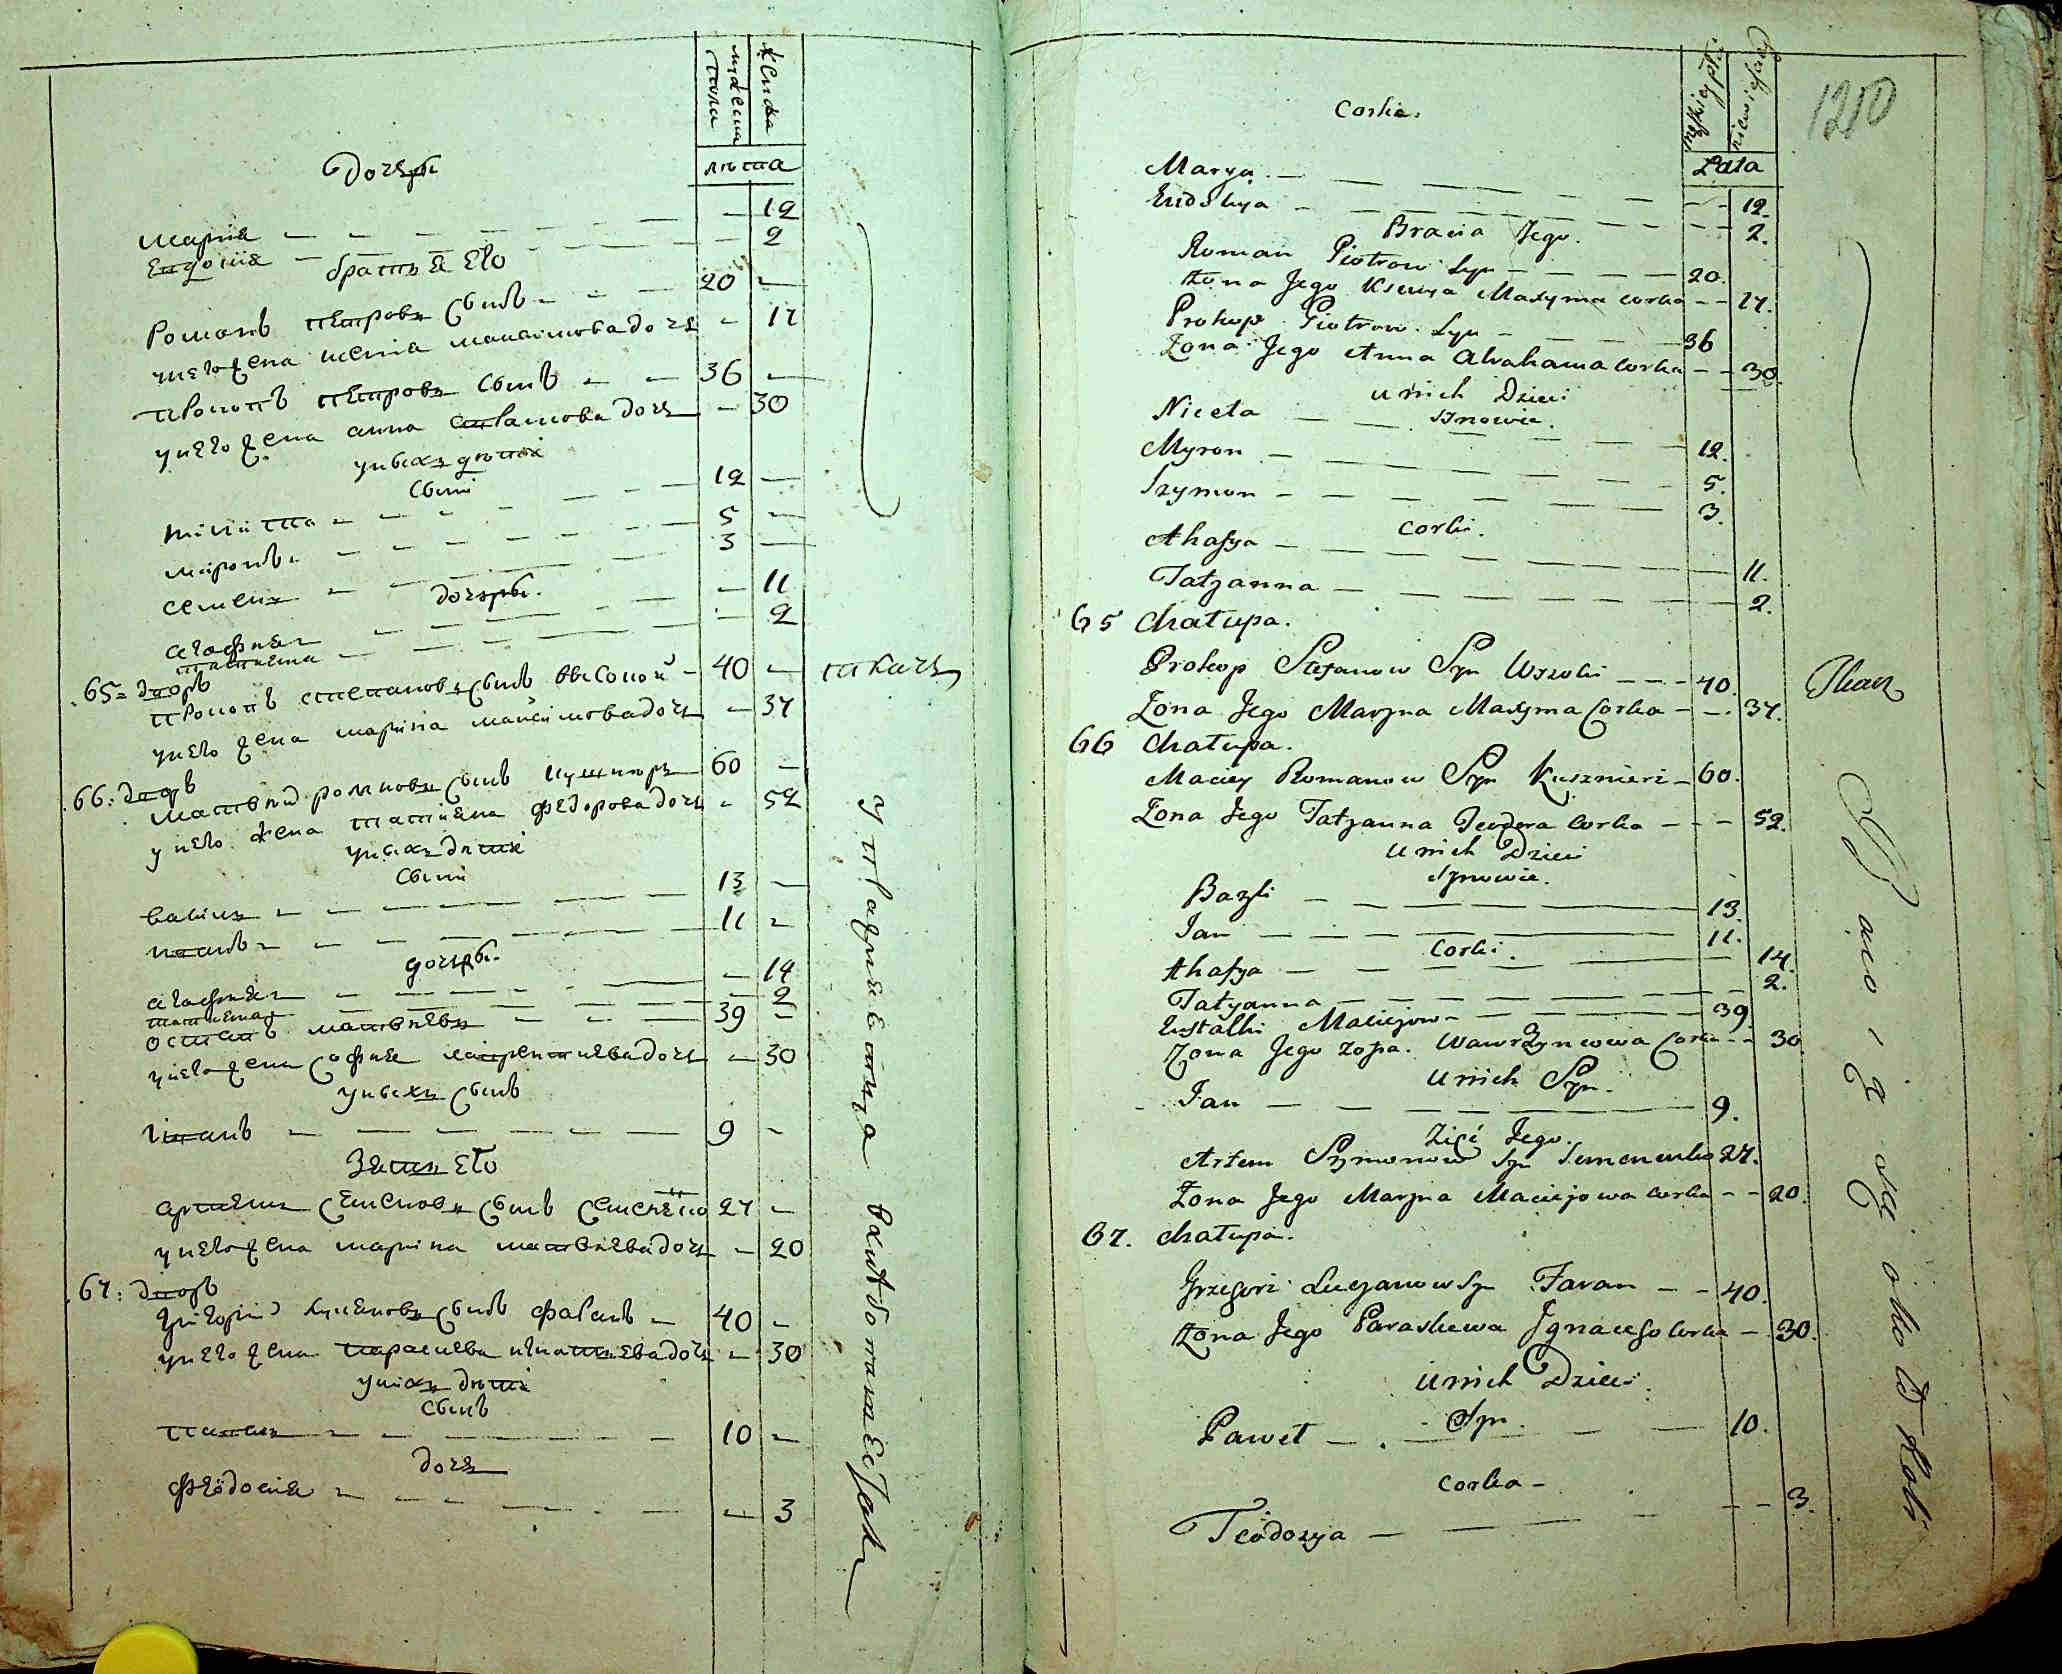 мужеска пола
женска
лѣта
дочери
Мария — 12
Евдокия — 2
братья его
Романъ Петровъ сынъ — 20
у него жена Ксения Максимова дочь — 17
Прокопъ Петровъ сынъ — 36
у него жена Анна Аврамова дочь — 30
у нихъ дѣти
сыни
Никита — 12
Миронъ — 5
Семенъ — 3
дочери
Агафия — 11
Татияна — 2
65: дворъ
Прокопъ Степановъ сынъ Високой — 40 — ткачъ
у него жена Марина Максимова дочь — 37
66: дворъ
Матвѣй Романовъ сынъ Кушниръ 60
у него жена Татияна Федорова дочь — 52
у нихъ дѣти
сыни
Василь — 13
Иванъ — 11
дочери
Агафия — 14
Татияна — 2
Остапъ Матвѣевъ — 39
у него жена София Лаврентиева дочь — 30
у нихъ сынъ
Иванъ — 9
зять его
Артемъ Семеновъ сынъ Семененко 27
у него жена Марина Матвѣева дочь — 20
67: дворъ
Григорий Лукяновъ сынъ Фаранъ — 40
у него жена Параскева Игнатиева дочь — 30
у нихъ дѣти
сынъ
Павелъ — 10
дочь
Феодосия — 3
упражняются
1210
męzkiey płci
niewieściey
Lata
Corki.
Marya — 12.
Eudokya — 2.
Bracia Jego.
Roman Piotrow Syn — 20.
Żona Jego Ksenya Maxyma corka — 17.
Prokop Piotrow Syn — 36
Żona Jego Anna Abrahama corka — 30.
u nich Dzieci
Synowie.
Niceta — 12.
Myron — 5.
Szymon — 3.
Corki.
Ahafya — 11.
Tatyanna — 2.
65 Chałupa.
Prokop Stefanow Syn Wysoki — 40. Tkacz
Żona Jego Maryna Maxyma Corka — 37.
66 Chałupa.
Maciey Romanow Syn Kusznierz — 60.
Żona Jego Tatyanna Teodora corka — 52.
u nich Dzieci
Synowie.
Bazyli — 13.
Jan — 11.
Corki.
Ahafya — 14.
Tatyanna — 2.
Eustafki Maciejow — 39.
Żona Jego Zofia Wawrzyncowa Corka — 30.
u nich Syn.
Jan — 9.
Zięć Jego.
Artem Szymonow Syn Semenenko 27.
Żona Jego Maryna Maciejowa corka — 20.
67. Chałupa.
Grzegorz Lucyanow Syn Faran — 40.
Żona Jego Paraskewa Jgnacego Corka — 30.
u nich Dzieci
Syn.
Paweł — 10.
Corka —
Teodozya — 3.